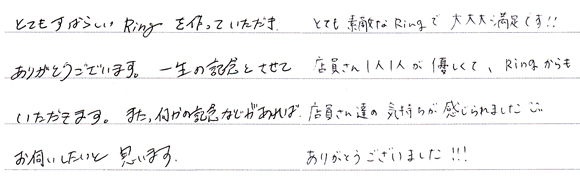 とてもすばらしい Ring を作っていただき
ありがとうございます。一生の記念とさせて
いただきます。また、何かの記念などがあれば、
お伺いしたいと思います。
とても素敵なRingで大大大満足です!!
店員さん1人1人が優しくて、Ringからも
店員さん達の気持ちが感じられました
ありがとうございました!!!